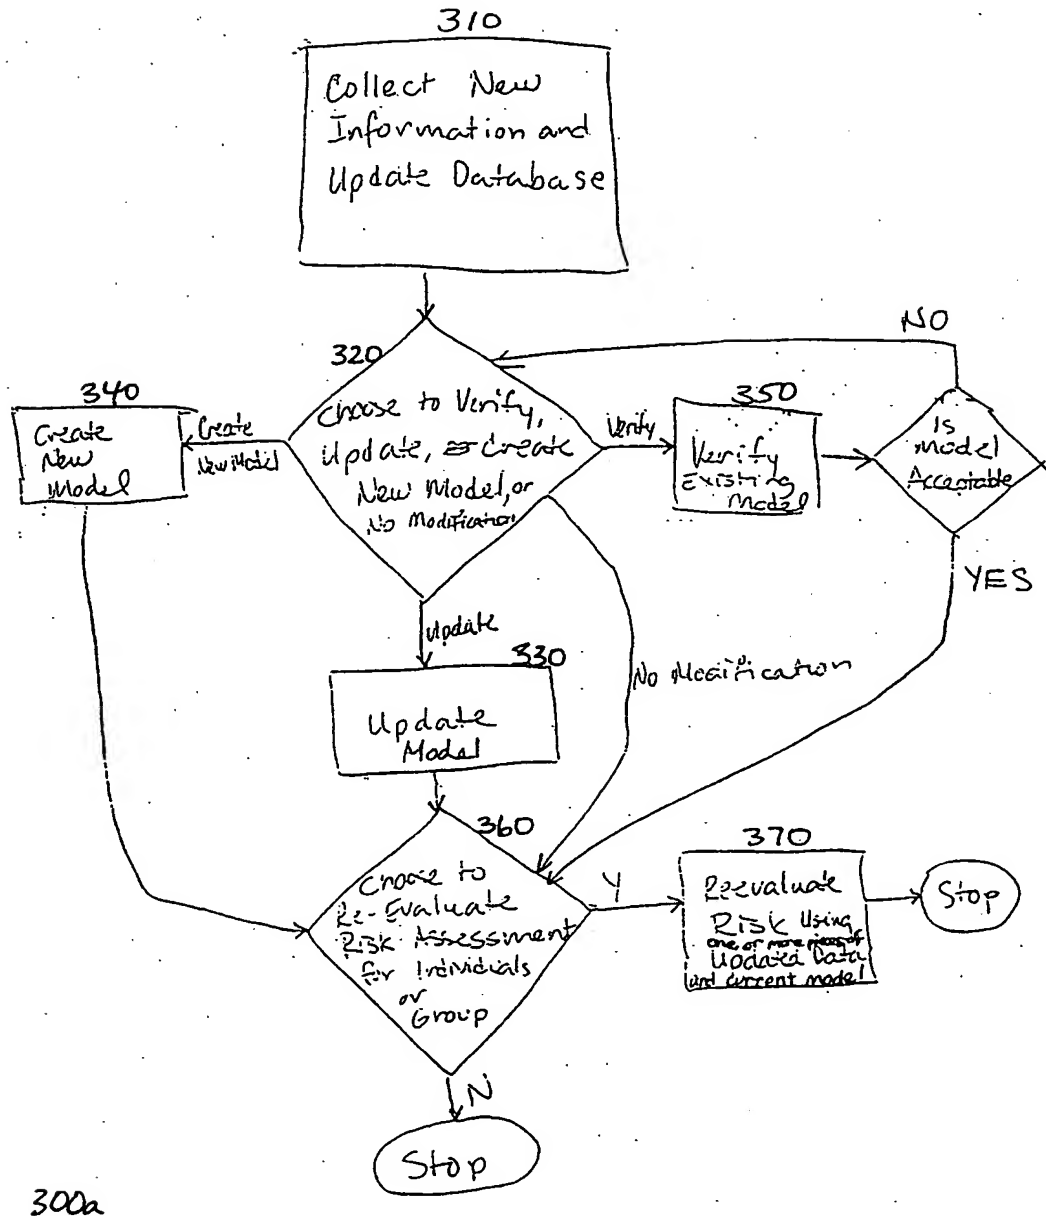 310
Collect New
Information and
Update Database
NO
320
340
350
Choose to Verify,
Update, or Create
New Model, or
No Modification
Create
New Model
Create
New
Model
Verify
Verify
Existing
Model
Is
Model
Acceptable
YES
Update
330
Update
Model
No Modification
360
Choose to
Re-Evaluate
Risk Assessment
for Individuals
or
Group
Y
370
Reevaluate
Risk Using
one or more pieces of
Updated Data
and current model
Stop
N
Stop
300a